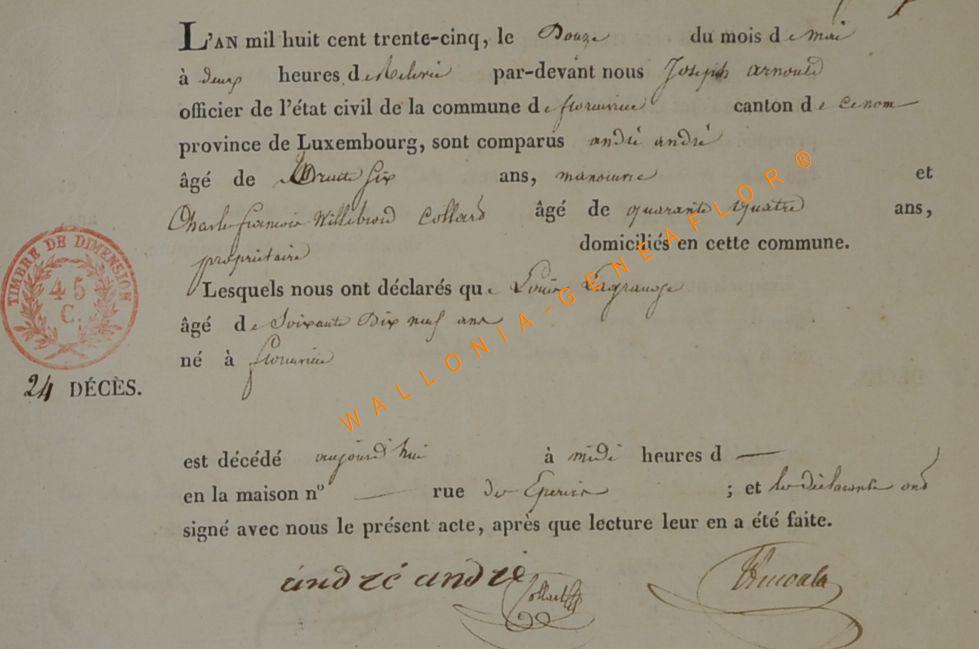 L'AN mil huit cent trente-cinq, le Douze du mois de mai
à deux heures de relevée par-devant nous Joseph arnould
officier de l'état civil de la commune de florenville canton de
province de Luxembourg, sont comparus andré andré
âgé de trente six ans, manoeuvre et
Charle françois Willebrord Collard âgé de quarante quatre ans,
propriétaire domiciliés en cette commune.
Lesquels nous ont déclarés que Louis Lagrange
âgé de Soixante Dix neuf ans
né à florenville
TIMBRE DE DIMENSION
45
C.
24 DÉCÈS.
est décédé aujourd'hui à midi heures d —
en la maison n° — rue ; et les déclarants ont
signé avec nous le présent acte, après que lecture leur en a été faite.
andré andré Collard
WALLONIA-GENEAFLOR®